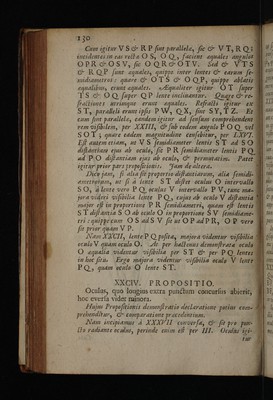 130
Cum igitur VS & RP sint parallelæ, sic & VT, RQ;
incidentes in eas rectæ OS, OQ, faciunt æquales angulos
OPR & OSV, sic OQR & OTV. Sed & VTS
& RQP sunt æquales, quippe inter lentes & earum se-
midiametros: quare & OTS & OQP, quippe ablatis
æqualibus, erunt æquales. Æqualiter igitur OT super
TS & OQ super QP lente inclinantur. Quare & re-
fractiones utrinque erunt æquales. Refracti igitur ex
ST, paralleli erunt ipsis PW, QX, sint SY, TZ. Et
cum sint parallelæ, eandem igitur ad sensum comprehendent
rem visibilem, per XXIII, & sub eodem angulo POQ vel
SOT; quare eadem magnitudine censebitur, per LXVI.
Est autem etiam, ut VS semidiameter lentis ST ad SO
distantiam ejus ab oculo, sic PR semidiameter lentis PQ
ad PO distantiam ejus ab oculo, & permutatim. Patet
igitur prior pars propositionis. Jam de altera.
Dico jam, si alia sit proportio distantiarum, alia semidi-
ametrorum, ut si à lente ST distet oculus O intervallo
SO, à lente vero PQ oculus V intervallo PV, tunc ma-
jora videri visibilia lente PQ, cujus ab oculo V distantia
major est in proportione PR semidiametri, quam est lentis
ST distantia SO ab oculo O in proportione SV semidiame-
tri: quippe cum OS ad SV sit ut OP ad PR, OP vero
sit prior quam VP.
Nam XXCII, lente PQ posita, majora videntur visibilia
oculo V quam oculo O. At per hactenus demonstrata oculo
O æqualia videntur visibilia per ST & per PQ lentes
in hoc situ. Ergo majora videntur visibilia oculo V lente
PQ, quam oculo O lente ST.
XXCIV. PROPOSITIO.
Oculus, quo longius extra punctum concursus abierit,
hoc eversa videt minora.
Hujus Propositionis demonstratio declaratione potius com-
prehenditur, & comparatione præcedentium.
Nam incipiamus à XXXVII conversa, & sit pro pun-
cto radiante oculus, perinde enim est per III. Oculus igi-
tur